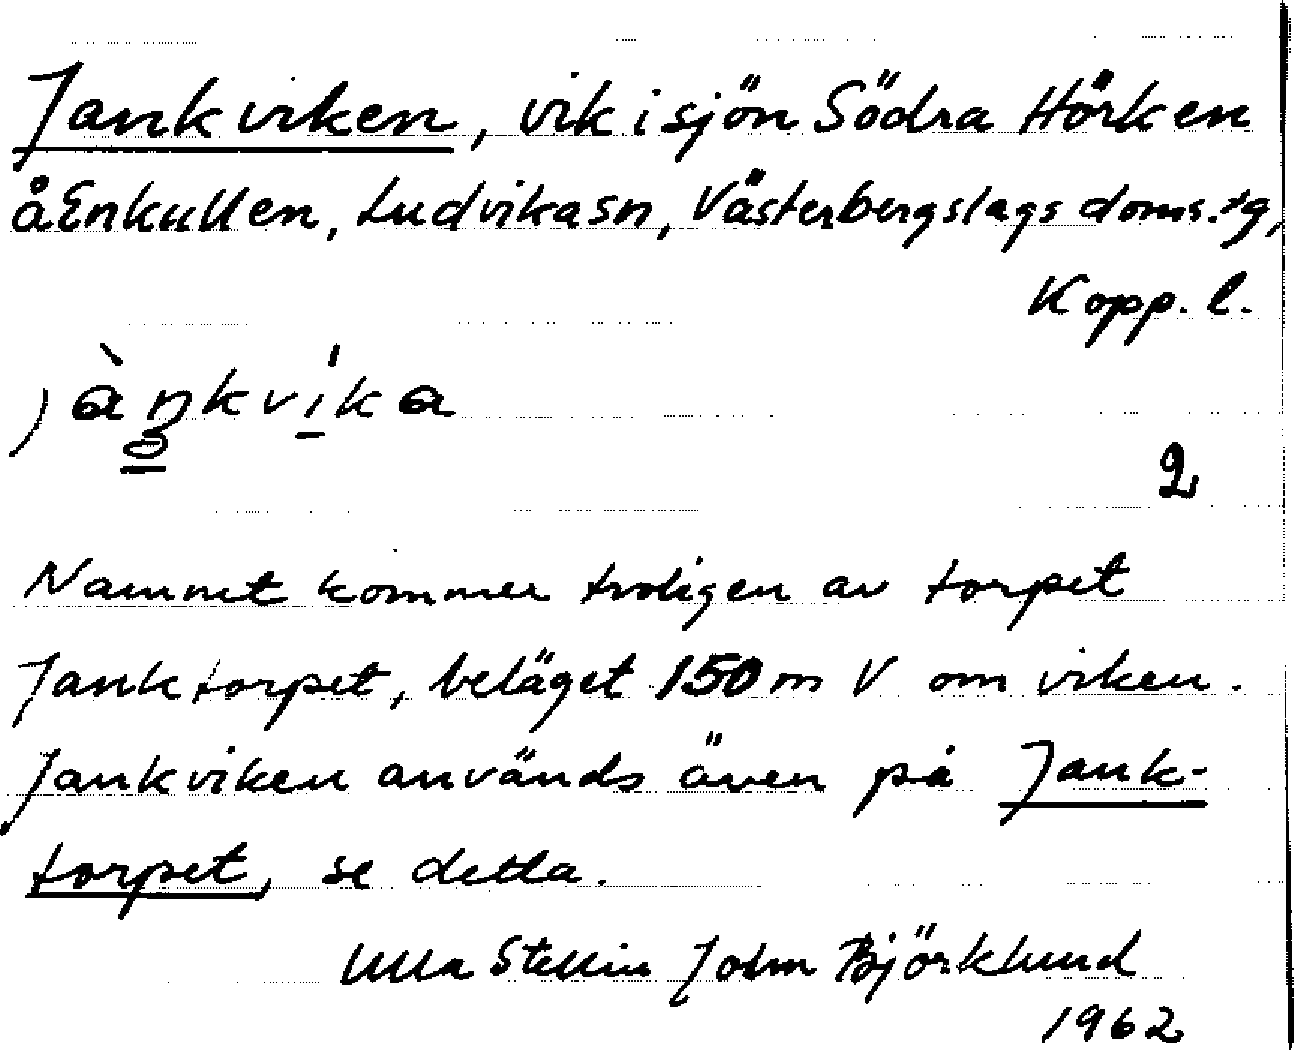 Jankviken, vik i sjön Södra Hörken
å Enkullen, Ludvika sn, Västerbergslags doms.tg,
Kopp. l.
) àŋkvíka
2
Namnet kommer troligen av torpet
Janktorpet, beläget 150 m V om viken.
Jankviken används även på Jank-
torpet, se detta.
Ulla Stellin John Björklund
1962